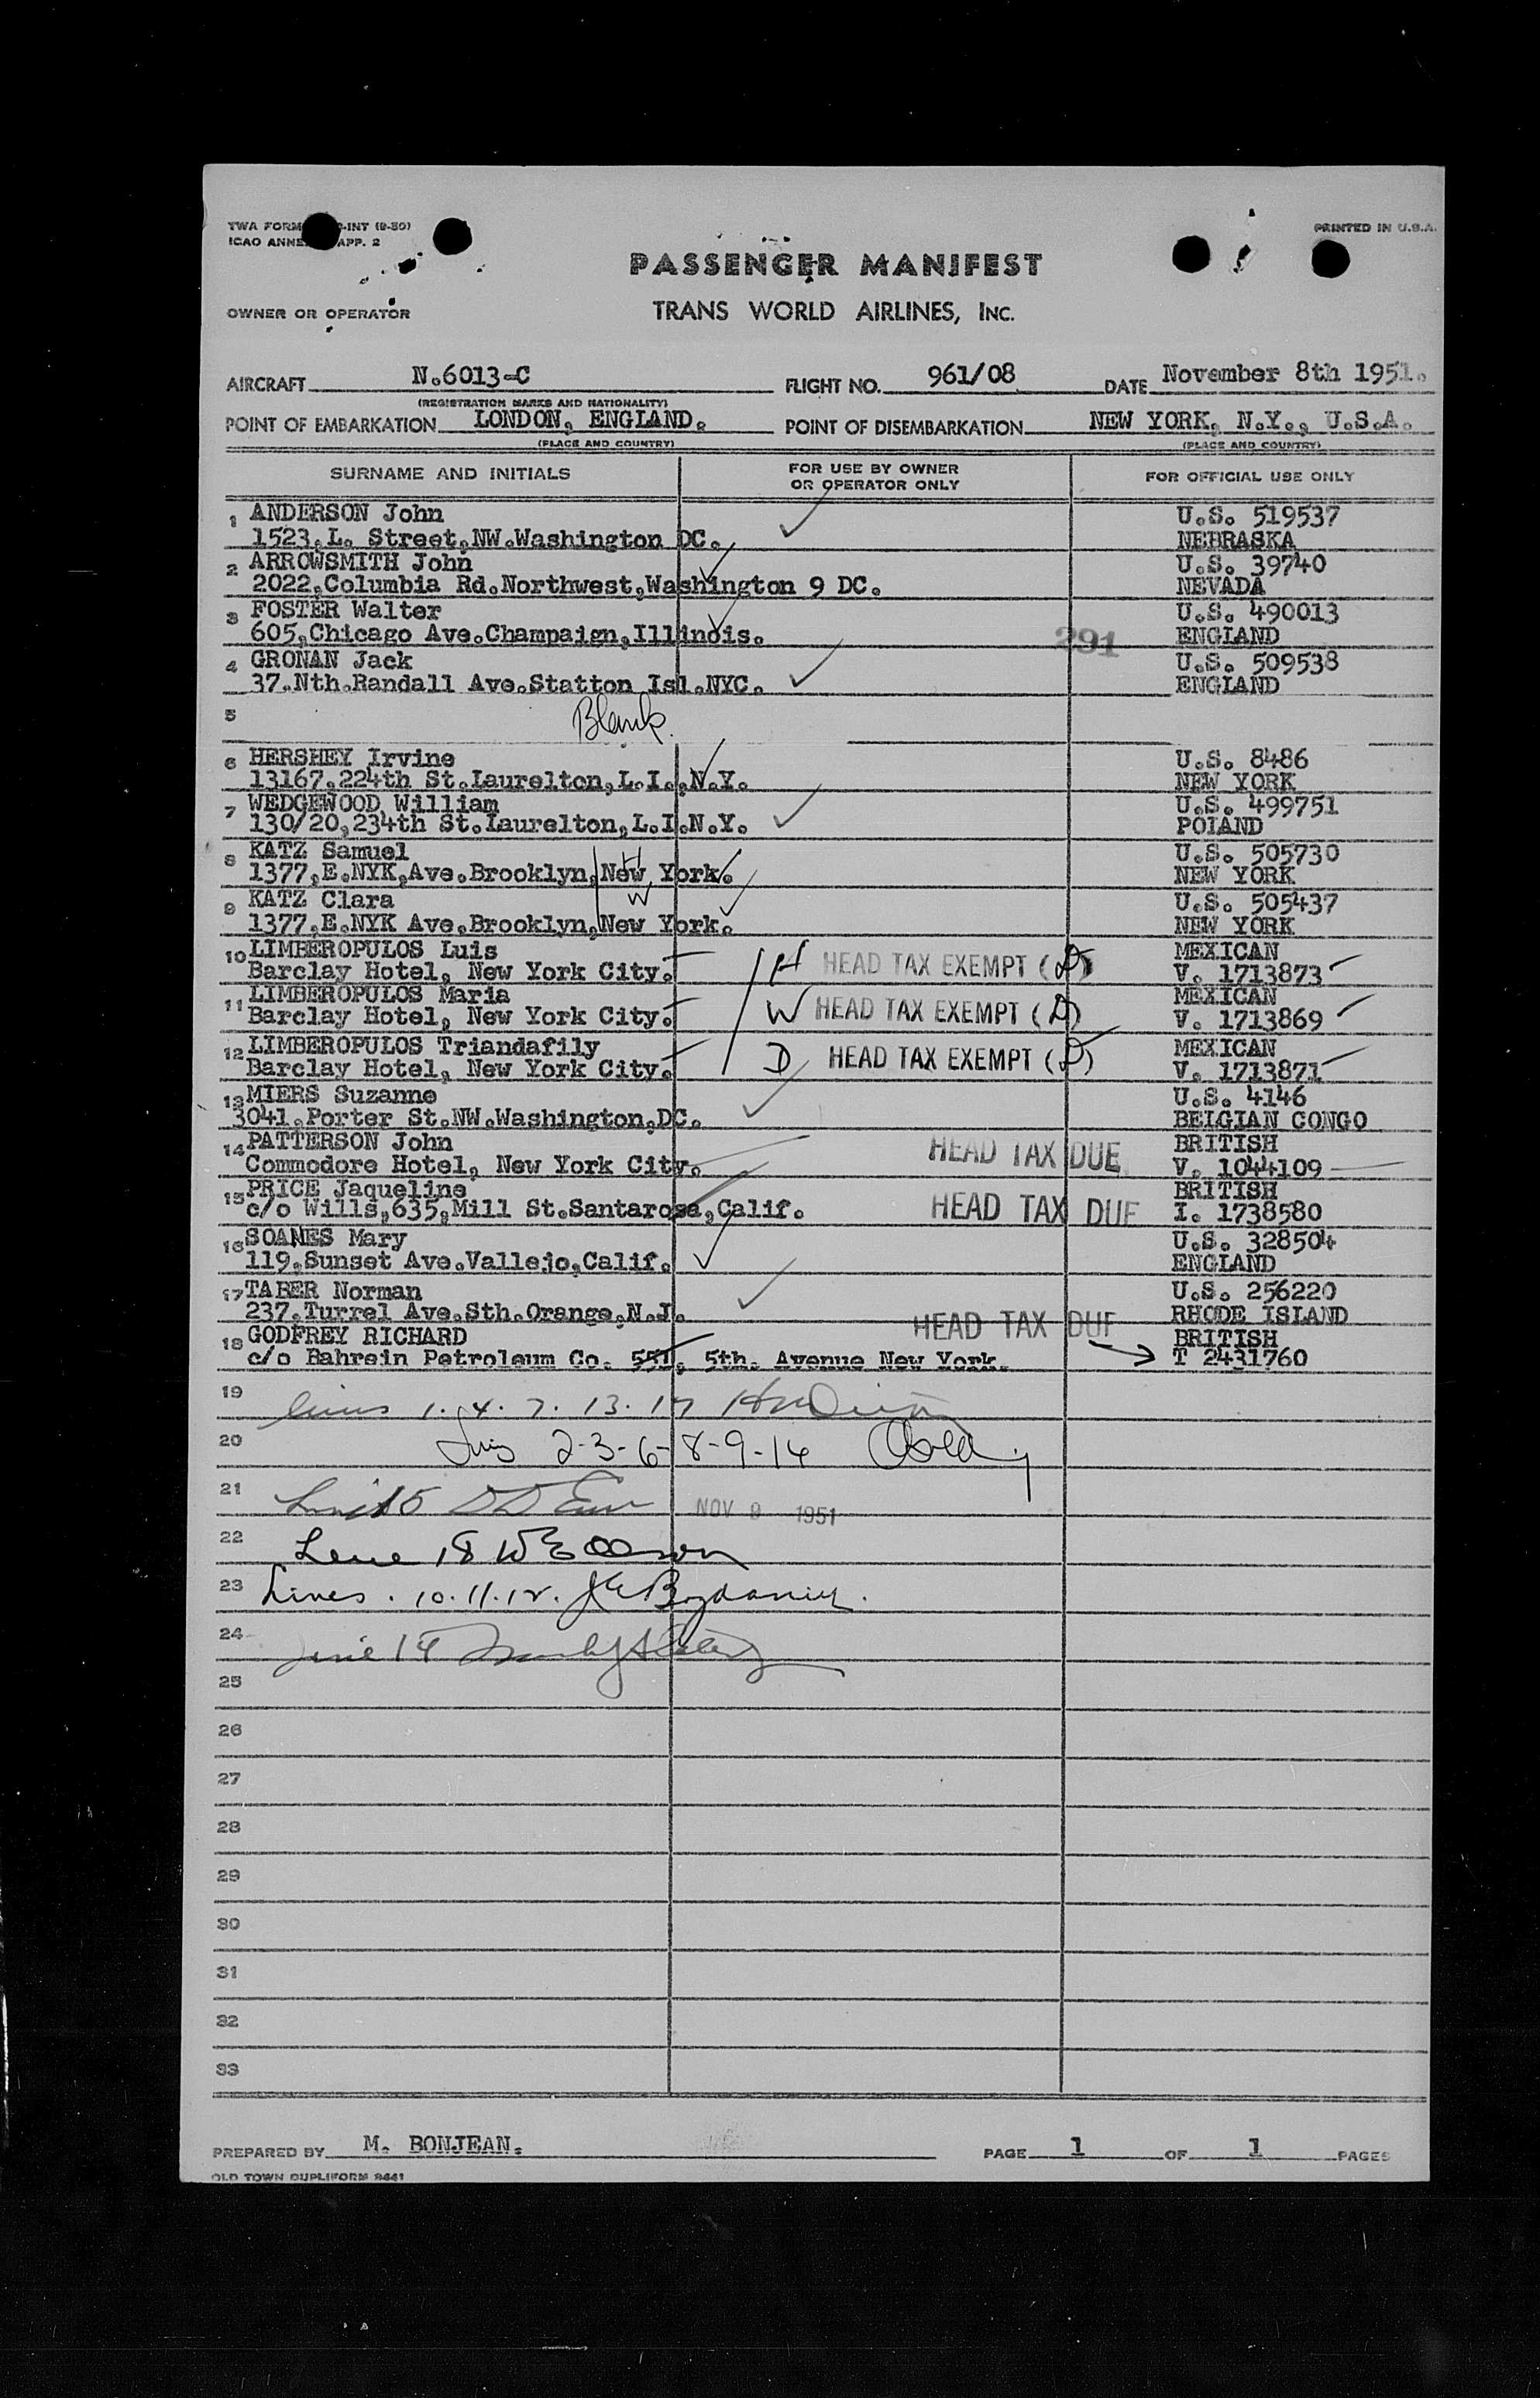 TWA FORM -INT (9-50)
ICAO ANNE APP. 2
PRINTED IN U.S.A.
PASSENGER MANIFEST
OWNER OR OPERATOR TRANS WORLD AIRLINES, INC.
AIRCRAFT N.6013-C FLIGHT NO. 961/08 DATE November 8th 1951.
(REGISTRATION MARKS AND NATIONALITY)
POINT OF EMBARKATION LONDON, ENGLAND. POINT OF DISEMBARKATION NEW YORK, N.Y., U.S.A.
(PLACE AND COUNTRY) (PLACE AND COUNTRY)
SURNAME AND INITIALS FOR USE BY OWNER OR OPERATOR ONLY FOR OFFICIAL USE ONLY
1 ANDERSON John U.S. 519537
1523,L. Street,NW.Washington DC. NEBRASKA
2 ARROWSMITH John U.S. 39740
2022,Columbia Rd.Northwest,Washington 9 DC. NEVADA
3 FOSTER Walter U.S. 490013
605,Chicago Ave.Champaign,Illinois. 291 ENGLAND
4 GRONAN Jack U.S. 509538
37.Nth.Randall Ave.Statton Isl.NYC. ENGLAND
5 Blank.
6 HERSHEY Irvine U.S. 8486
13167,224th St.Laurelton,L.I.,N.Y. NEW YORK
7 WEDGEWOOD William U.S. 499751
130/20,234th St.Laurelton,L.I.N.Y. POLAND
8 KATZ Samuel H U.S. 505730
1377,E.NYK,Ave.Brooklyn,New York. NEW YORK
9 KATZ Clara W U.S. 505437
1377,E.NYK Ave.Brooklyn,New York. NEW YORK
10 LIMBEROPULOS Luis H HEAD TAX EXEMPT (D) MEXICAN
Barclay Hotel, New York City. V. 1713873
11 LIMBEROPULOS Maria W HEAD TAX EXEMPT (D) MEXICAN
Barclay Hotel, New York City. V. 1713869
12 LIMBEROPULOS Triandafily D HEAD TAX EXEMPT (D) MEXICAN
Barclay Hotel, New York City. V. 1713871
13 MIERS Suzanne U.S. 4146
3041.Porter St.NW.Washington,DC. BELGIAN CONGO
14 PATTERSON John HEAD TAX DUE BRITISH
Commodore Hotel, New York City. V. 1044109
15 PRICE Jaqueline HEAD TAX DUE BRITISH
c/o Wills,635,Mill St.Santarosa,Calif. I. 1738580
16 SOANES Mary U.S. 328504
119,Sunset Ave.Vallejo,Calif. ENGLAND
17 TABER Norman U.S. 256220
237,Turrel Ave.Sth.Orange,N.J. RHODE ISLAND
18 GODFREY RICHARD HEAD TAX DUE BRITISH
c/o Bahrein Petroleum Co. 551, 5th. Avenue New York. T 2431760
19 1. 4. 7. 13. 17
20 2-3-6-8-9-14
21 NOV 9 1951
22 Line 18
23 Lines. 10.11.12.
24 Line 14
25
26
27
28
29
30
31
32
33
PREPARED BY M. BONJEAN. PAGE 1 OF 1 PAGES
OLD TOWN DUPLIFORM 9441